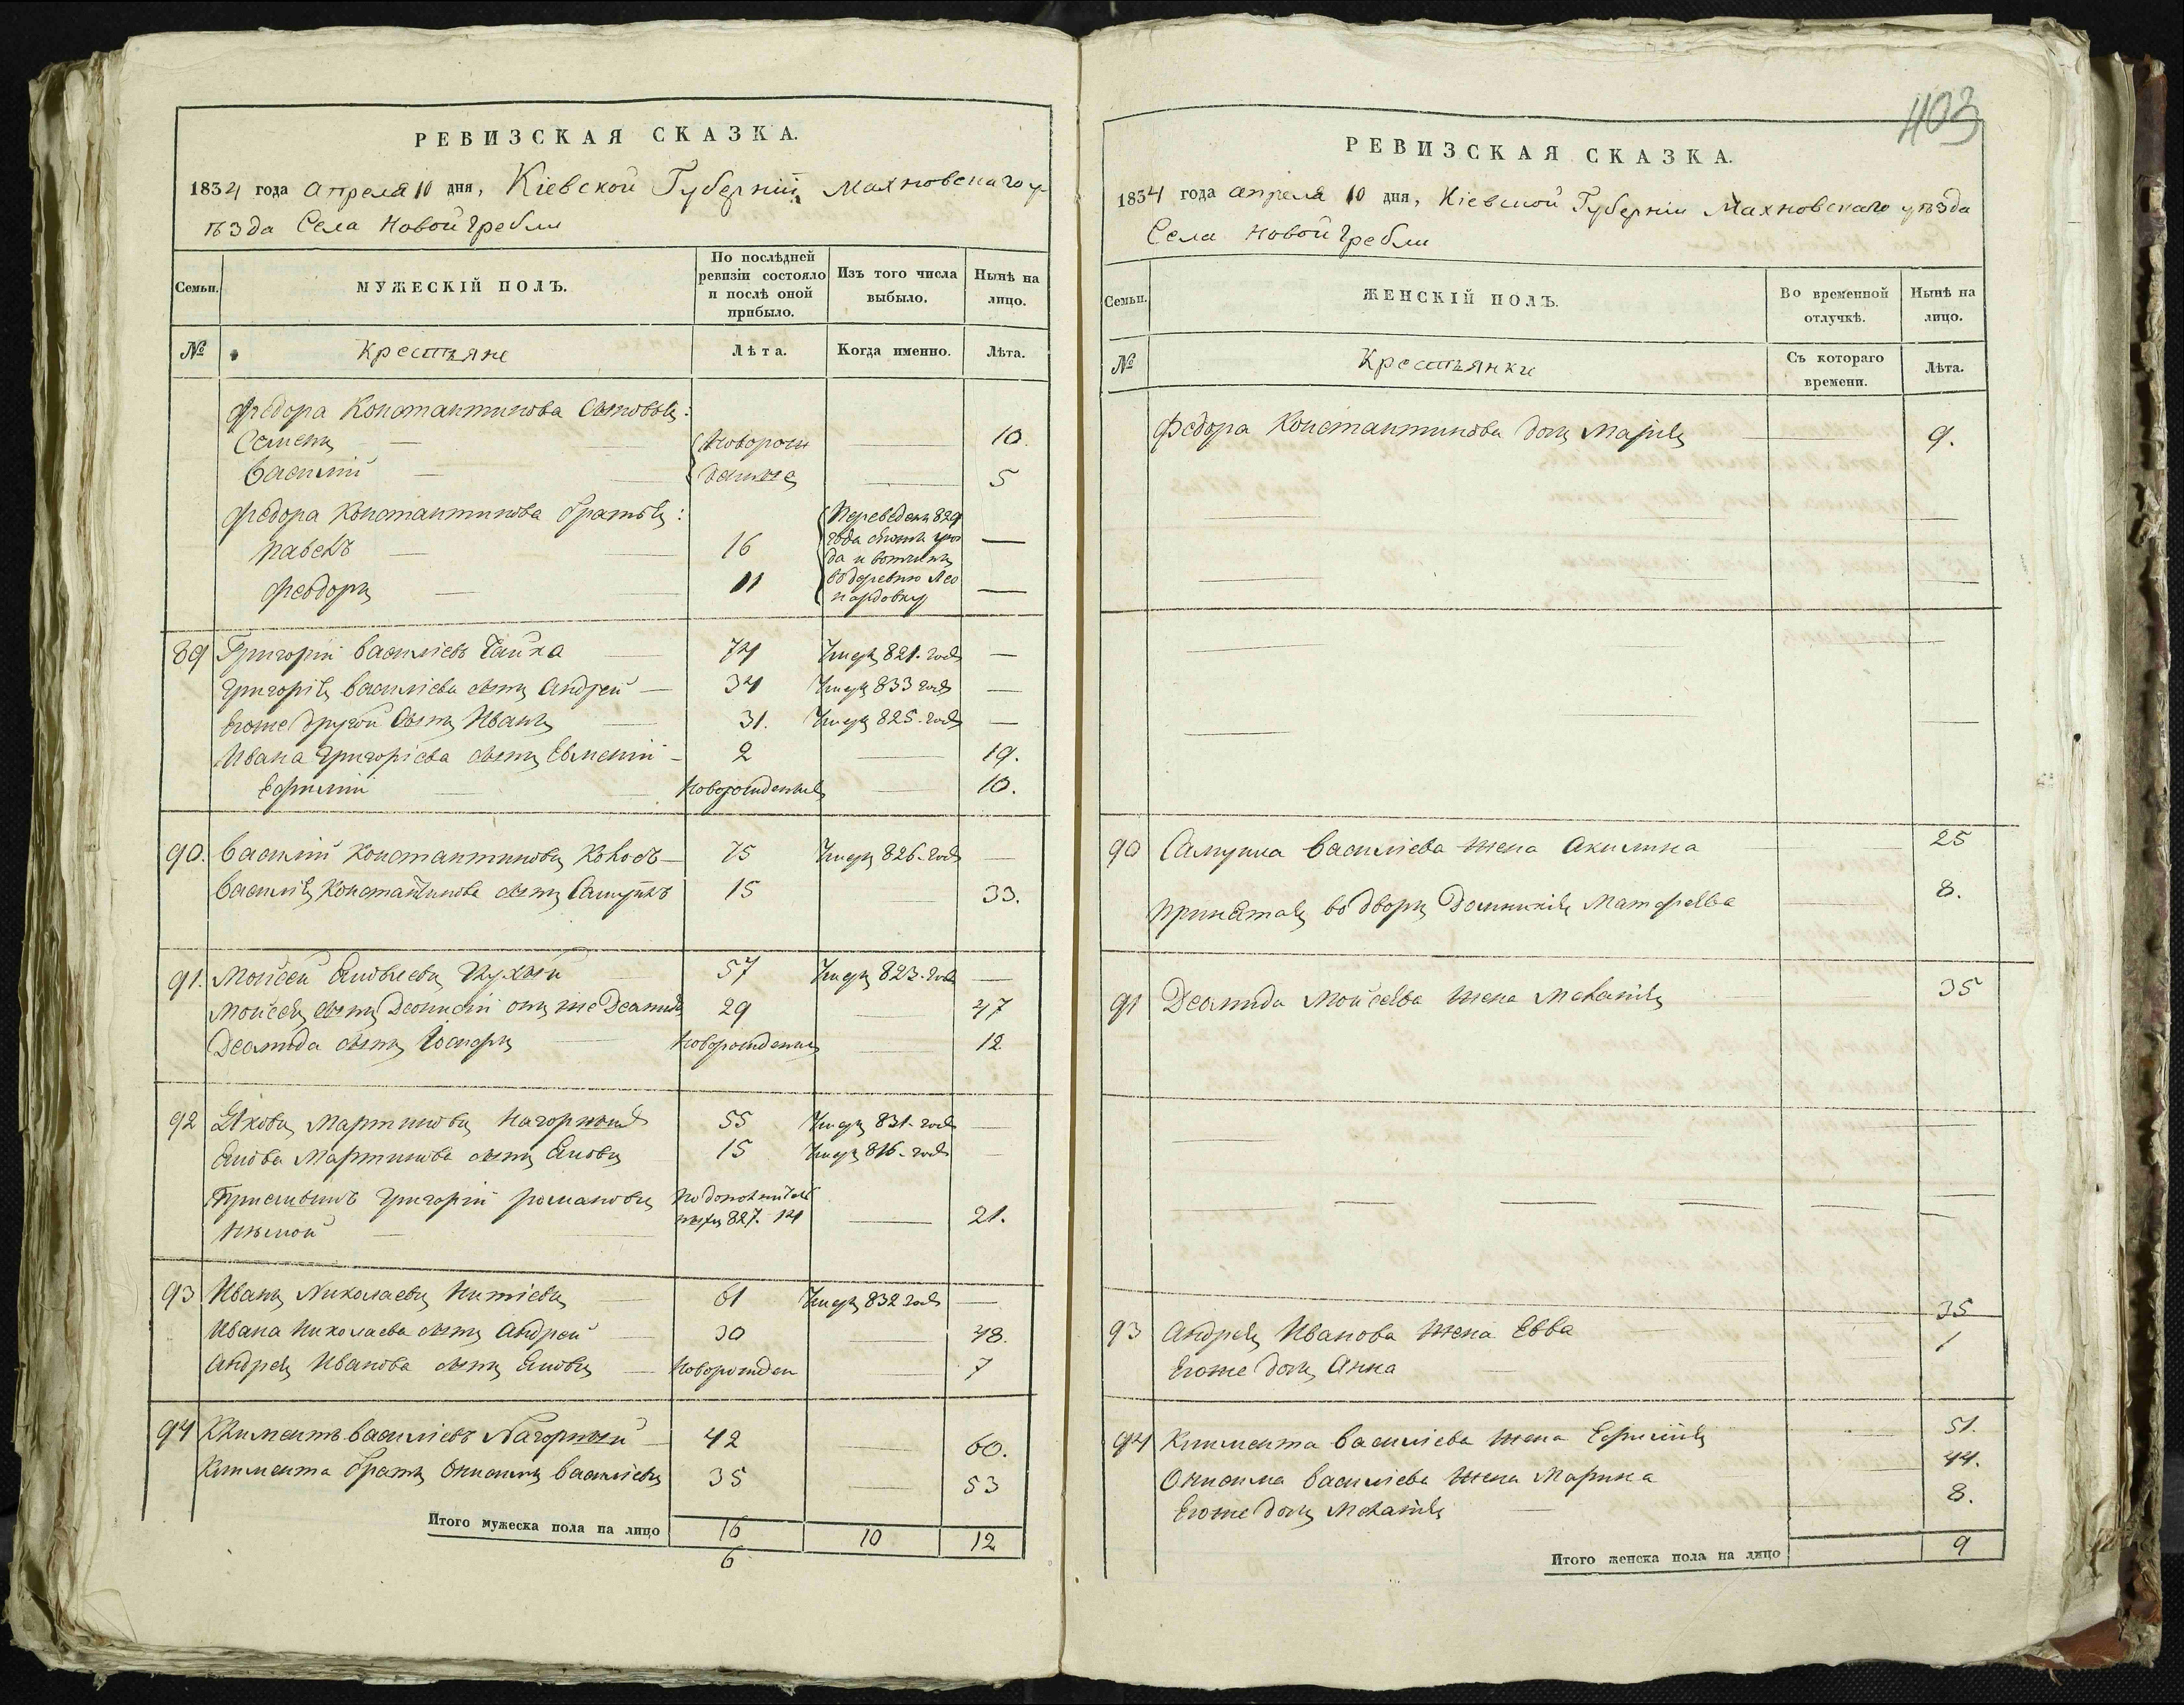 403
РЕВИЗСКАЯ СКАЗКА.
1834 года апреля 10 дня, Кіевской Губерніи Махновскаго у-
ѣзда Села Новой гребли
Семьи.
МУЖЕСКІЙ ПОЛЪ.
По послѣдней ревизіи состояло и послѣ оной прибыло.
Изъ того числа выбыло.
Нынѣ на лицо.
№ Крестьяне Лѣта. Когда именно. Лѣта.
Федора Константинова сыновья:
Семенъ — Новорож 10.
Василій — денные 5
Федора Константинова братья:
Павелъ — 16 —
Федоръ — 11 —
Переведены 829
года
въ деревню Лео
пардовку
89 Григорій Василіевъ Чайка 74 Умеръ 821. года —
Григорія Василіева сынъ Андрей — 34 Умеръ 833 года —
Егоже другой сынъ Иванъ 31. Умеръ 825. года —
Ивана Григоріева сынъ Евмений — 2 — 19.
Новорожденные — 10.
90. Василій Константиновъ — 75 Умеръ 826. года —
Василія Константинова сынъ 15 33.
91. Мойсей Яковлевъ 57 Умеръ 823. года —
Мойсея сынъ Деонисий онъ же Деомидъ 29 — 47
Деомида сынъ Новорожденны — 12.
92 Яковъ Мартиновъ Нагорный 55 Умеръ 831. года —
Якова Мартинова сынъ Яковъ 15 Умеръ 816. года —
Григорій Романовъ По дополнитель
827. 14 — 21.
93 Иванъ Николаевъ 61 Умеръ 832 года —
Ивана Николаева сынъ Андрей 30 48.
Андрея Иванова сынъ Яковъ — Новорожден — 7
94 Климентъ Василіевъ Нагорный — 42 60.
Климента братъ Онисимъ Василіевъ 35 — 53
Итого мужеска пола на лицо 16 10 12
6
РЕВИЗСКАЯ СКАЗКА.
1834 года апреля 10 дня, Кіевской Губерніи Махновскаго уѣзда
Села Новой гребли
Семьи.
ЖЕНСКІЙ ПОЛЪ.
Во временной отлучкѣ.
Нынѣ на лицо.
№ Крестьянки Съ котораго времени. Лѣта.
Федора Константинова дочь Марія — 9.
90 Василіева жена Акилина — 25
во дворъ Матфеева — 8.
91 Деомида Мойсеева жена Меланія 35
93 Андрея Иванова жена Евва 35
Егоже дочь Анна — 1
94 Климента Василіева жена 51.
Онисима Василіева жена Марина 44.
Егоже дочь Меланія — 8.
Итого женска пола на лицо 9